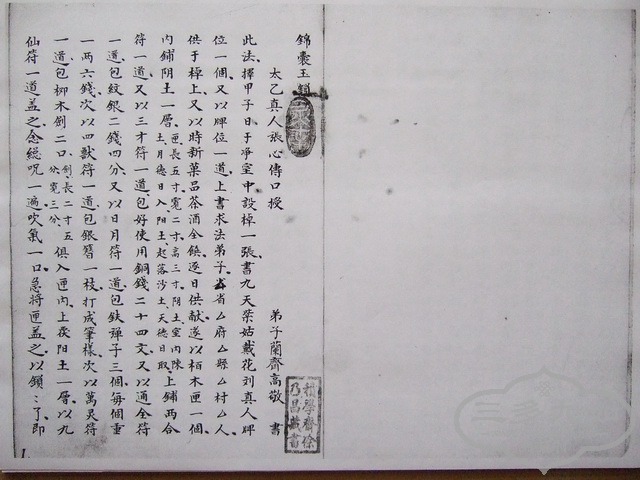 錦囊玉鎖
太乙真人張心傳口授　弟子蘭齋高敬　書
此法擇甲子日于凈室中設棹一張書九天柴姑戴花刘真人牌
位一個又以牌位一道上書求法弟子厶省厶府厶縣厶村厶人
供于棹上又以時新菓品茶酒全饒逐日供献遂以栢木匣一個
内鋪阴土一層匣長五寸寬二寸高三寸阴土室内陳土月德日入阳土起落沙土天德日取上鋪兩合
符一道又以三才符一道包好使用銅錢二十四文又以通全符
一道包紋銀二錢四分又以日月符一道包鈇弹子三個每個重
一两六錢次以四獸符一道包銀簪一枝打成筆様次以萬灵符
一道包柳木劍二口劍長二寸五分寬三分俱入匣内上蓌阳土一層以九
仙符一道盖之念緫呪一遍吹氣一口急將匣盖之以鎖鎖了即
積學齋徐乃昌藏書
1.